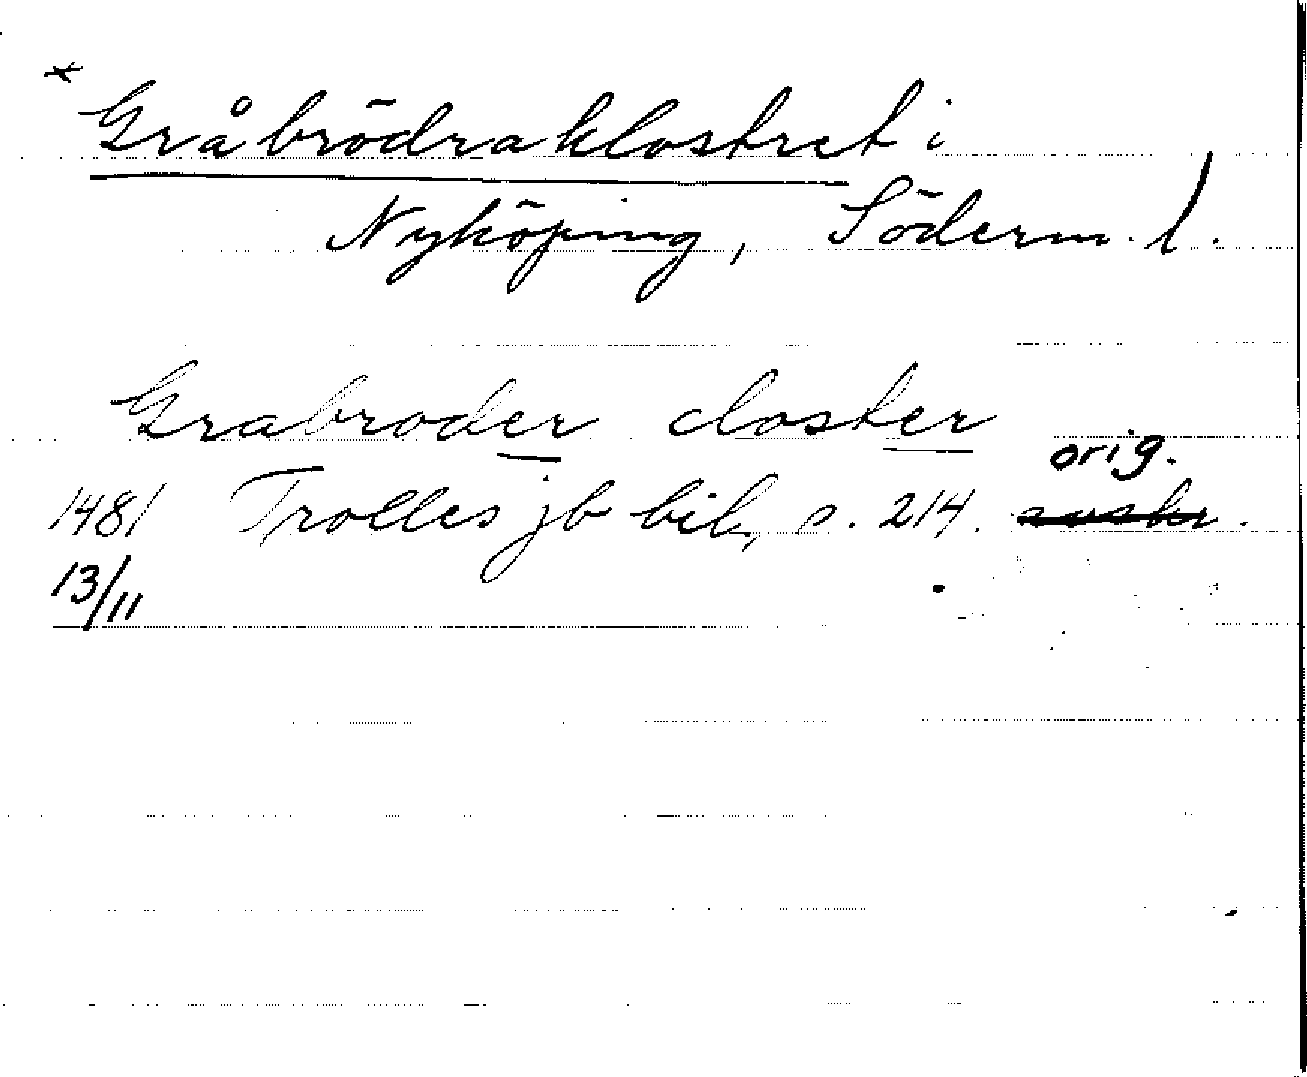 * Gråbrödraklostret i
Nyköping, Söderm. l.
Grabroder closter
orig.
1481 Trolles jb bil, s. 214.
13/11